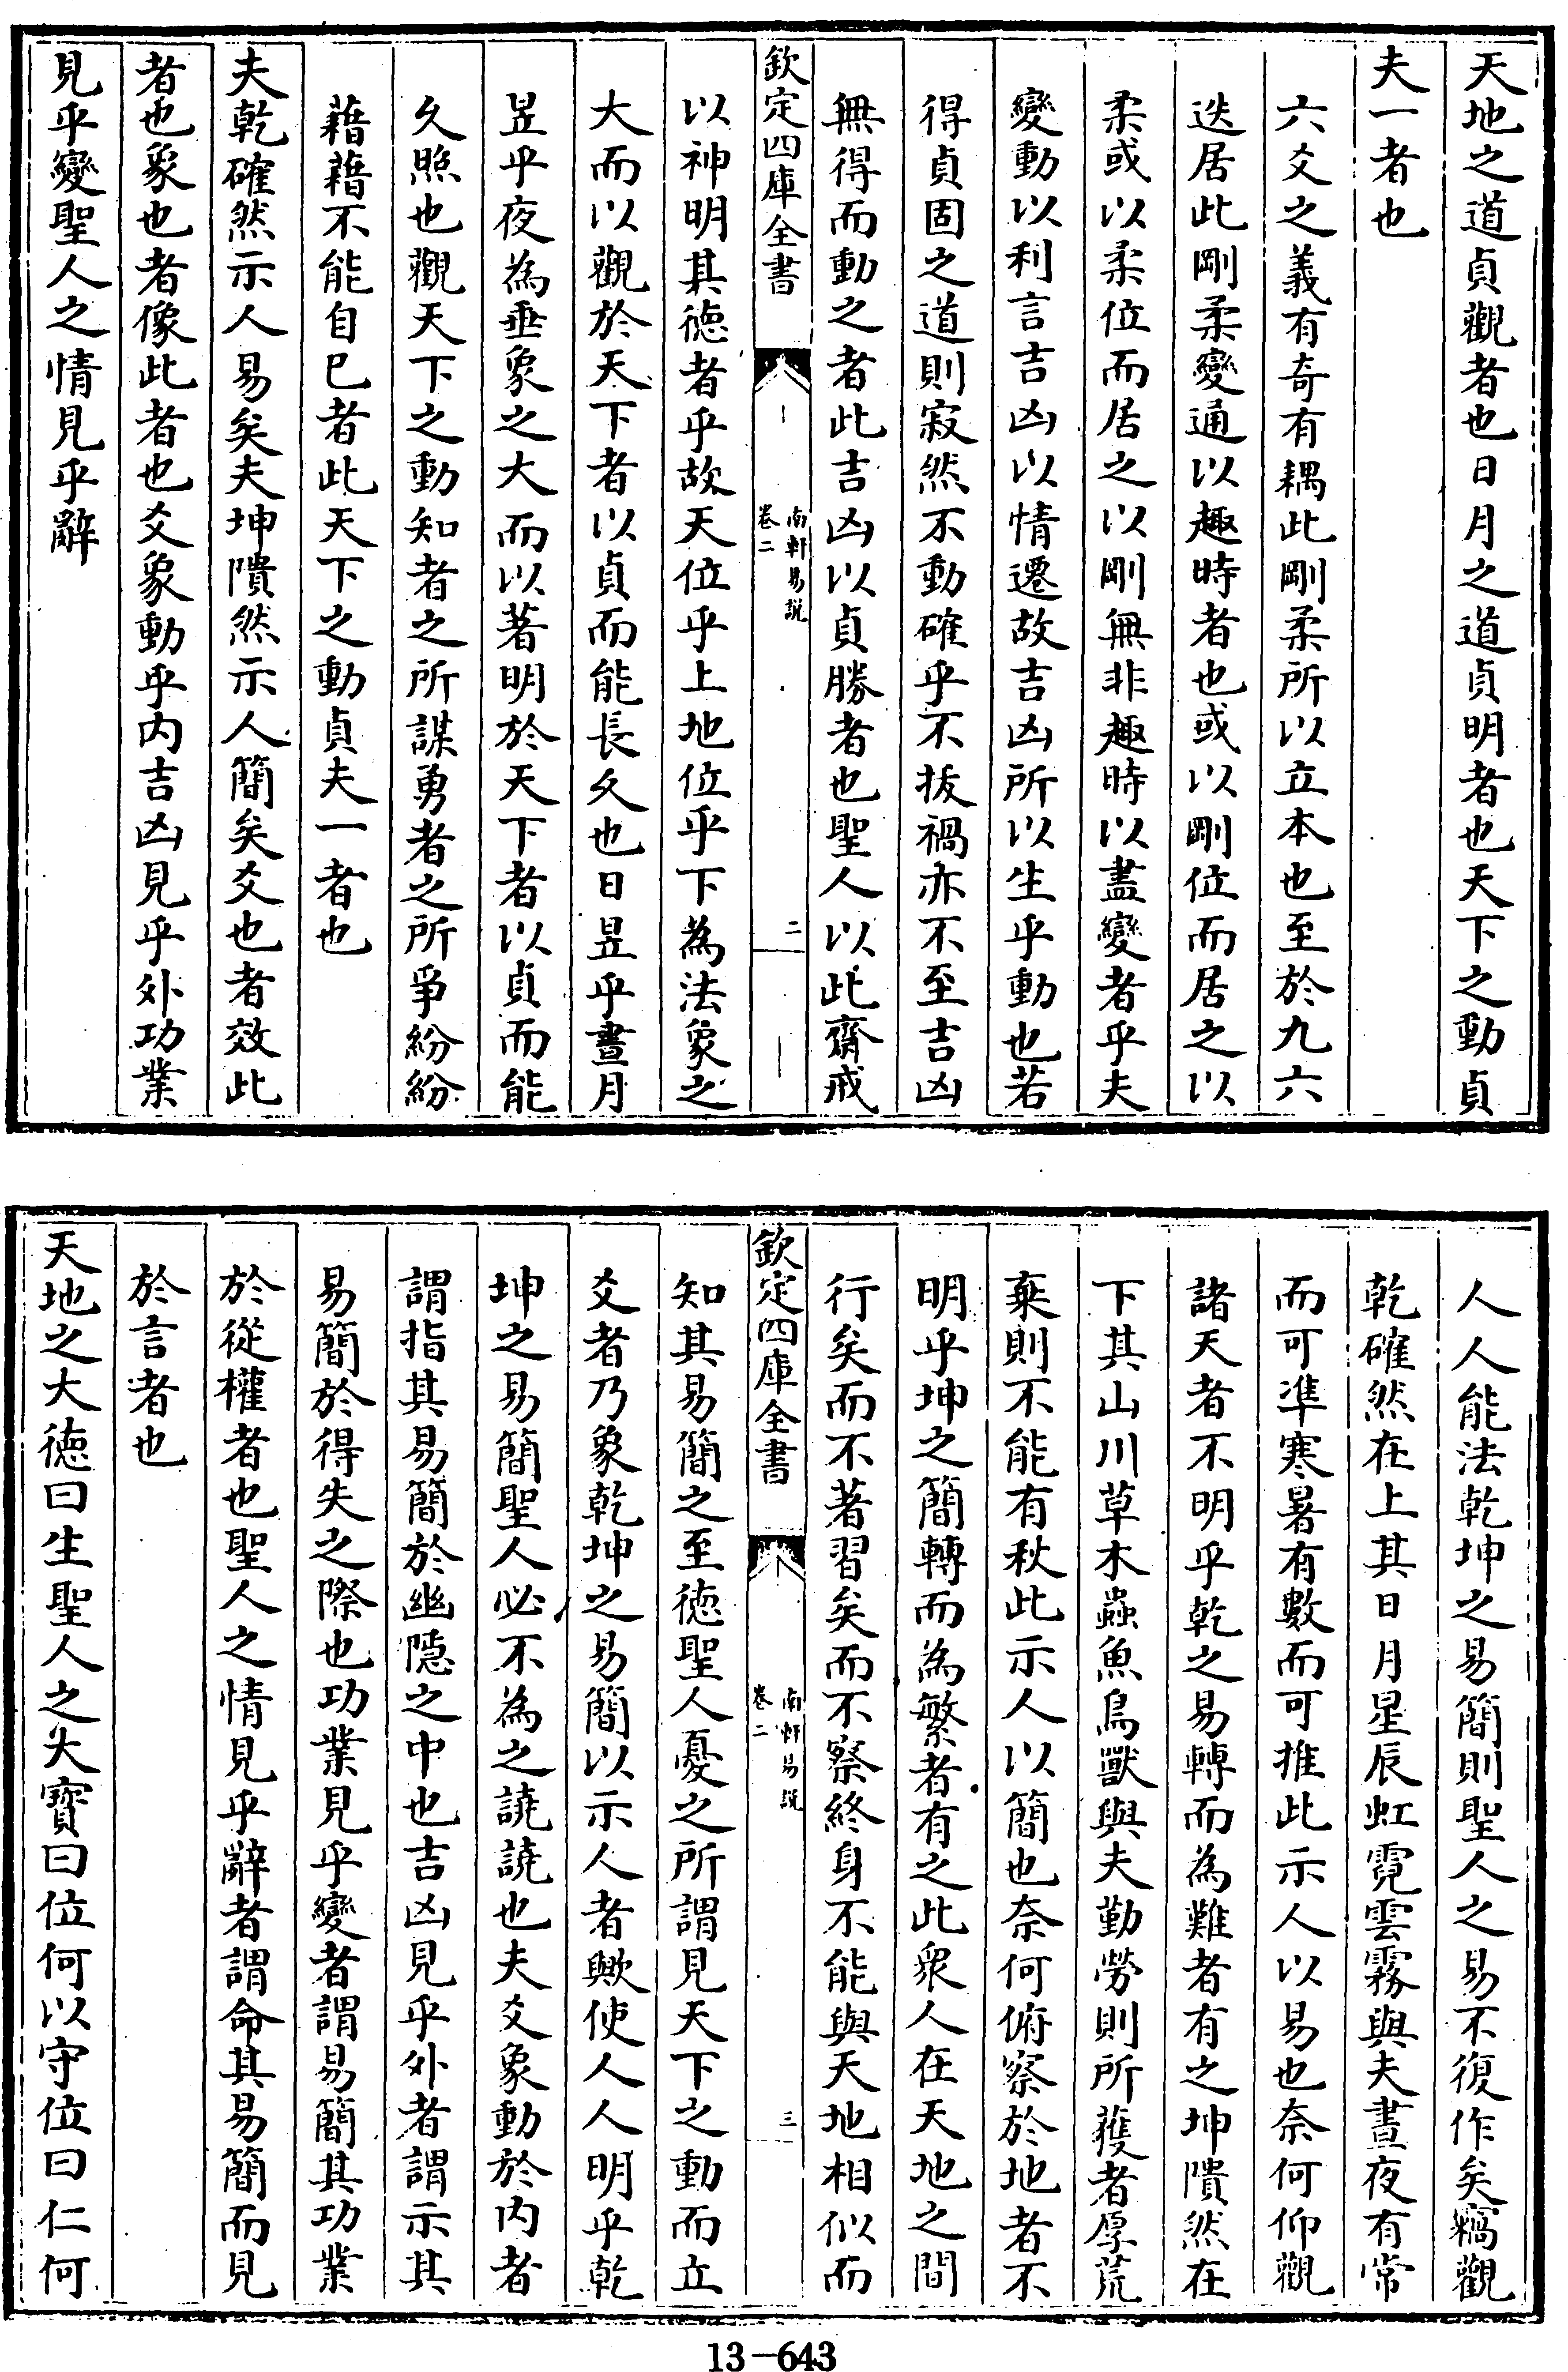 天地之道貞觀者也日月之道貞明者也天下之動貞
夫一者也
六爻之義有奇有耦此剛柔所以立本也至於九六
迭居此剛柔變通以趣時者也或以剛位而居之以
柔或以柔位而居之以剛無非趣時以盡變者乎夫
變動以利言吉凶以情遷故吉凶所以生乎動也若
得貞固之道則寂然不動確乎不拔禍亦不至吉凶
無得而動之者此吉凶以貞勝者也聖人以此齋戒
欽定四庫全書
南軒易說
卷二
二
以神明其德者乎故天位乎上地位乎下為法象之
大而以觀於天下者以貞而能長久也日昱乎晝月
昱乎夜為垂象之大而以著明於天下者以貞而能
久照也觀天下之動知者之所謀勇者之所爭紛紛
藉藉不能自已者此天下之動貞夫一者也
夫乾確然示人易矣夫坤隤然示人簡矣爻也者效此
者也象也者像此者也爻象動乎内吉凶見乎外功業
見乎變聖人之情見乎辭
人人能法乾坤之易簡則聖人之易不復作矣竊觀
乾確然在上其日月星辰虹霓雲霧與夫晝夜有常
而可凖寒暑有數而可推此示人以易也奈何仰觀
諸天者不明乎乾之易轉而為難者有之坤隤然在
下其山川草木蟲魚鳥獸與夫勤勞則所獲者厚荒
棄則不能有秋此示人以簡也奈何俯察於地者不
明乎坤之簡轉而為繁者有之此衆人在天地之間
行矣而不著習矣而不察終身不能與天地相似而
欽定四庫全書
南軒易說
卷二
三
知其易簡之至德聖人憂之所謂見天下之動而立
爻者乃象乾坤之易簡以示人者歟使人人明乎乾
坤之易簡聖人必不為之譊譊也夫爻象動於内者
謂指其易簡於幽隱之中也吉凶見乎外者謂示其
易簡於得失之際也功業見乎變者謂易簡其功業
於從權者也聖人之情見乎辭者謂命其易簡而見
於言者也
天地之大德曰生聖人之大寳曰位何以守位曰仁何
13-643